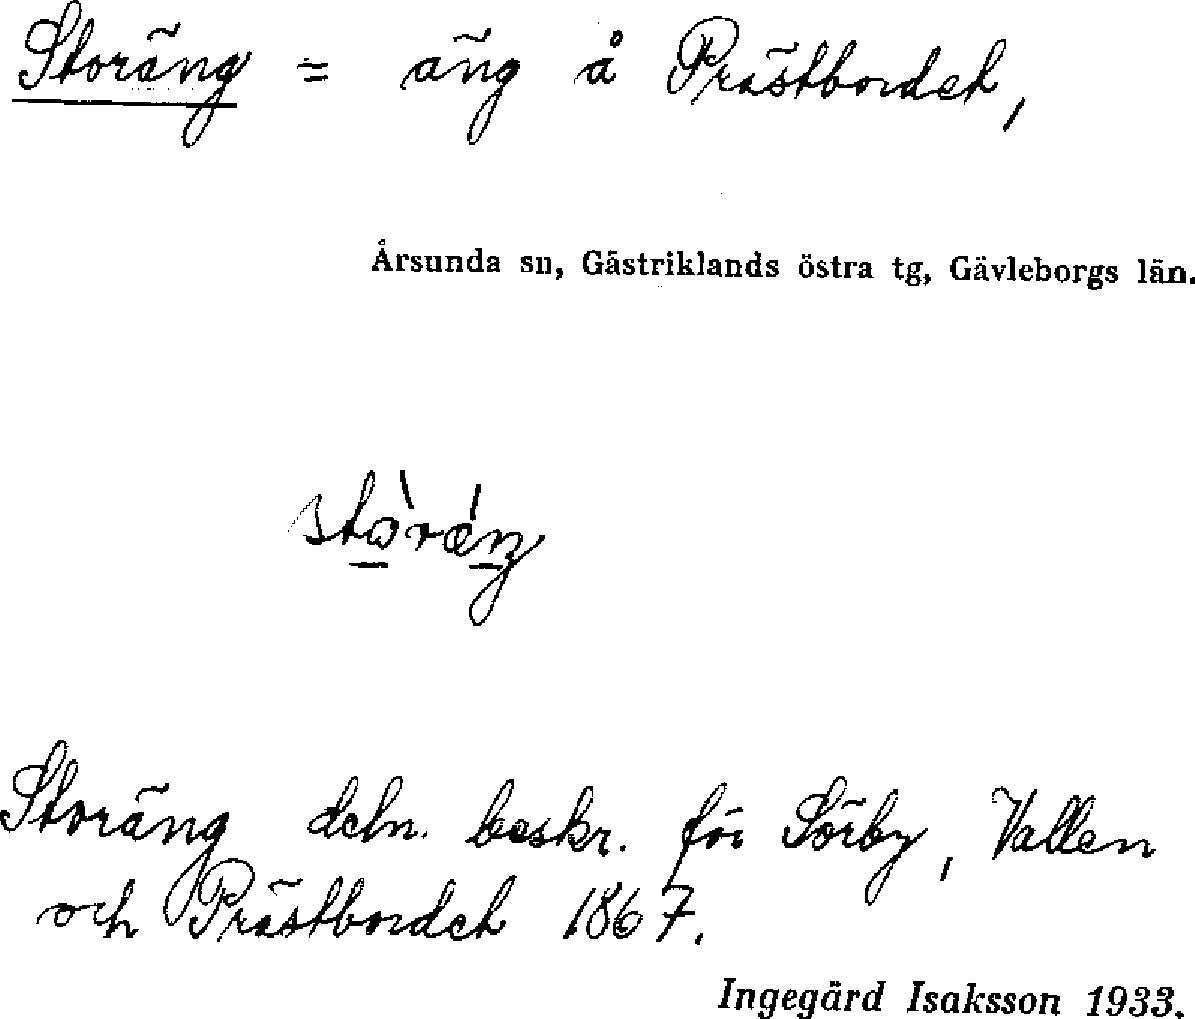 Storäng = äng å Prästbordet,
Årsunda sn, Gästriklands östra tg, Gävleborgs län.
stò̠rǽ̠ŋ
Storäng deln. beskr. för Sörby, Vallen
och Prästbordet 1867.
Ingegärd Isaksson 1933.